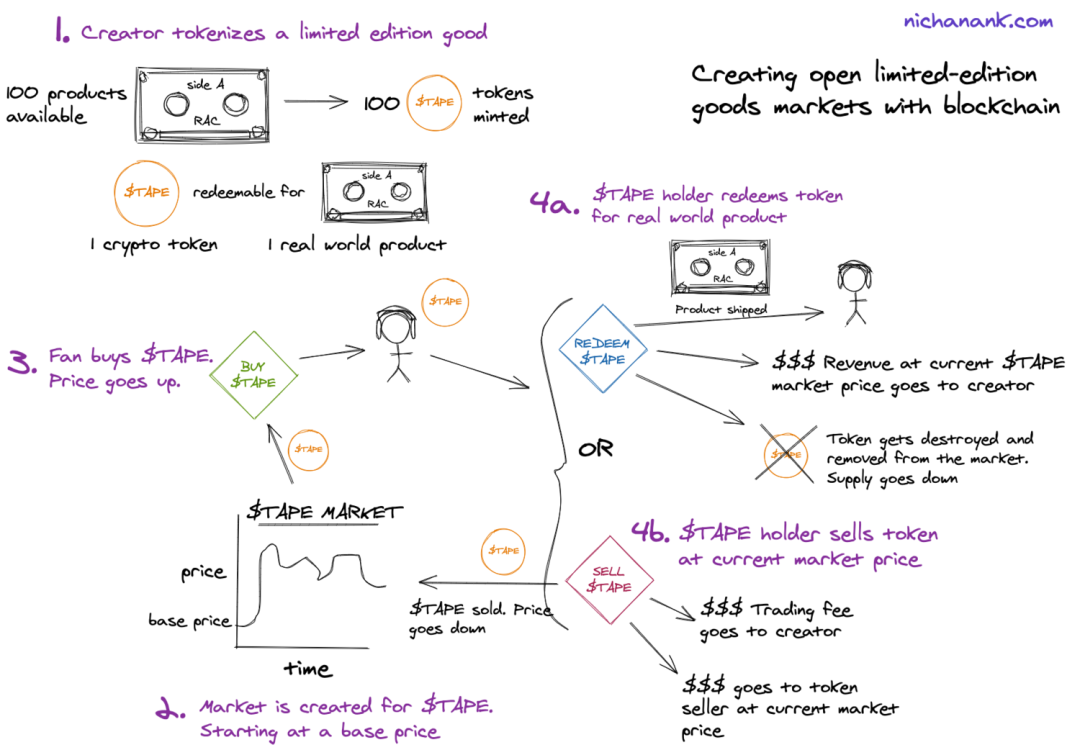 nichanank.com
Creating open limited-edition
goods markets with blockchain
1. Creator tokenizes a limited edition good
100 products
available
side A
RAC
100
$TAPE
tokens
minted
$TAPE
redeemable for
side A
RAC
1 crypto token
1 real world product
4a. $TAPE holder redeems token
for real world product
side A
RAC
Product shipped
$TAPE
3. Fan buys $TAPE.
Price goes up.
BUY
$TAPE
REDEEM
$TAPE
$$$ Revenue at current $TAPE
market price goes to creator
$TAPE
Token gets destroyed and
removed from the market.
Supply goes down
OR
$TAPE
$TAPE MARKET
price
base price
time
2. Market is created for $TAPE.
Starting at a base price
$TAPE
$TAPE sold. Price
goes down
4b. $TAPE holder sells token
at current market price
SELL
$TAPE
$$$ Trading fee
goes to creator
$$$ goes to token
seller at current market
price